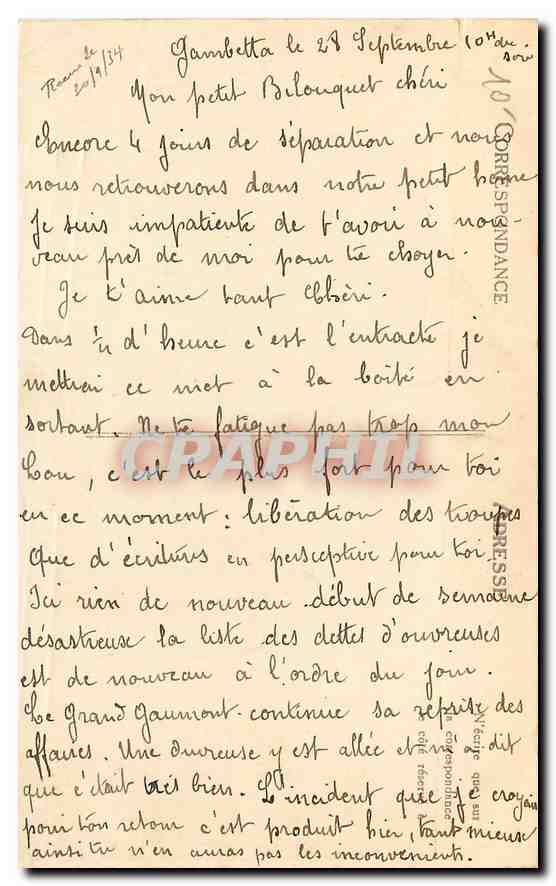 Gambetta le 28 Septembre 10H du
soir
20/9/34
Mon petit Bilouquet chéri
10
Encore 4 jours de séparation et nous
nous retrouverons dans notre petit home
Je suis impatiente de t'avoir à nou-
veau près de moi pour te choyer.
Je t'aime tant Chéri.
Dans 1/4 d'heure c'est l'entracte je
mettrai ce mot à la boîte en
sortant. Ne te fatigue pas trop mon
Lou, c'est le plus fort pour toi
en ce moment : libération des troupes
que d'écritures en perspective pour toi.
Ici rien de nouveau. début de semaine
désastreuse la liste des dettes d'ouvreuses
est de nouveau à l'ordre du jour.
Le Grand Gaumont continue sa reprise des
affaires. Une ouvreuse y est allée et m'a dit
que c'était très bien. L'incident que je croyais
pour ton retour c'est produit hier, tant mieux
ainsi tu n'en auras pas les inconvenients.
CORRESPONDANCE
ADRESSE
N'écrire que sur
la correspondance
côté réservé à
CPAPHIL